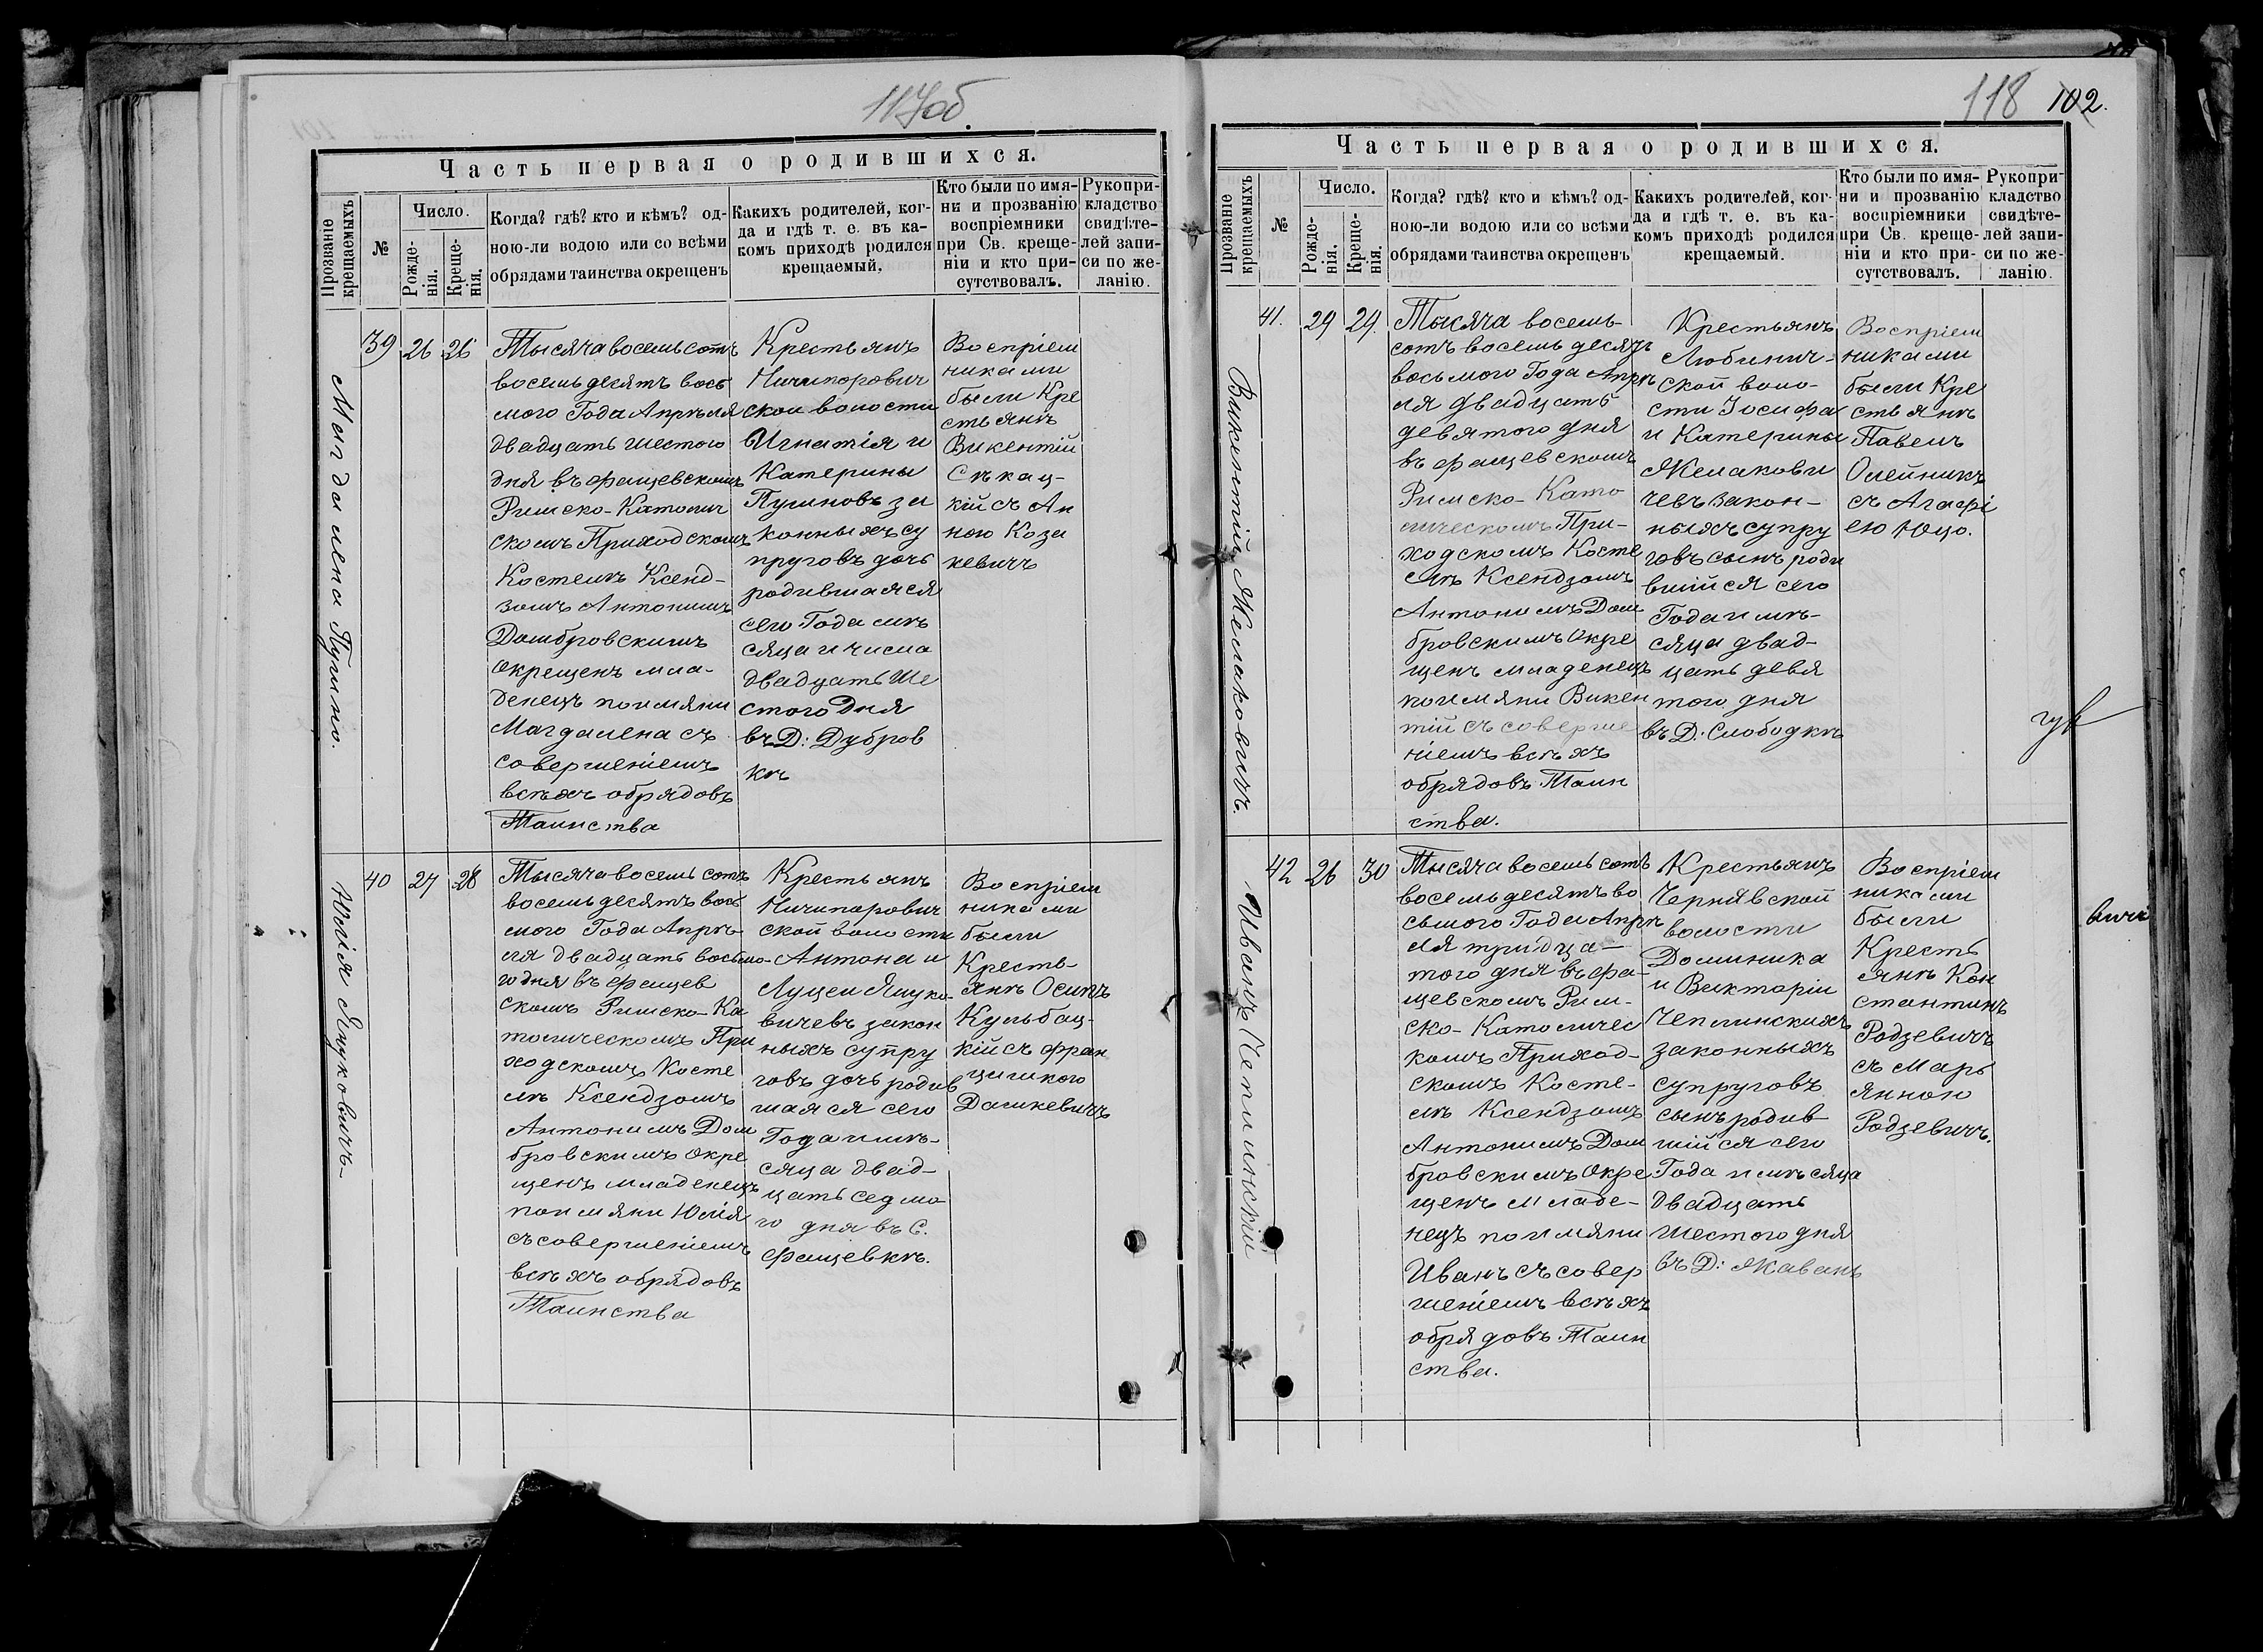 117об.
Часть первая о родившихся.
Прозваніе крещаемыхъ
№
Число.
Рожде-
нія.
Креще-
нія.
Когда? гдѣ? кто и кѣмъ? од-
ною-ли водою или со всѣми
обрядами таинства окрещенъ
Какихъ родителей, ког-
да и гдѣ т. е. въ ка-
комъ приходѣ родился
крещаемый.
Кто были по имя-
ни и прозванію
воспріемники
при Св. креще-
ніи и кто при-
сутствовалъ.
Рукопри-
кладство
свидѣте-
лей запи-
си по же-
ланію.
Магдалена Пугино.
39
26
26
Тысяча восемьсотъ
восемьдесятъ вось
мого Года Апрѣля
двадцать шестого
дня въ Фащевскомъ
Римско-Католич
скомъ Приходскомъ
Костелѣ Ксенд-
зомъ Антонимъ
Домбровскимъ
окрещенъ мла-
денецъ поимяни
Магдалена съ
совершеніемъ
всѣхъ обрядовъ
Таинства
Крестьянъ
Ничипорович
ской волости
Игнатія и
Катерины
Пугиновъ за
конныхъ су
пруговъ дочь
родившаяся
сего Года мѣ
сяца и числа
двадцать ше
стого Дня
въ Д: Дубров
кѣ
Воспріем
никами
были Кре
стьянѣ
Викентій
Сѣкац-
кій съ Ан
ною Коза
кевичъ
Юлія Яцуковичъ
40
27
28
Тысяча восемь сотъ
восемьдесятъ вось
мого Года Апрѣ-
ля двадцать восьмо-
го дня въ Фащев
скомъ Римско-Ка
толическомъ При
ходскомъ Косте
лѣ Ксендзомъ
Антонимъ Дом
бровскимъ Окре
щенъ младенецъ
поимяни Юлія
съ совершеніемъ
всѣхъ обрядовъ
Таинства
Крестьянъ
Ничипорович
ской волости
Антона и
Луцеи Яцуко-
вичевъ закон
ныхъ супру
говъ дочь родив
шаяся сего
Года и мѣ-
сяца двад-
цать седмо
го дня въ С.
Фащевкѣ.
Воспріем
никами
были
Кресть-
янѣ Осипъ
Кульбац-
кій съ Фран
цишкою
Дашкевичъ
118 102.
Часть первая о родившихся.
Прозваніе крещаемыхъ
№
Число.
Рожде-
нія.
Креще-
нія.
Когда? гдѣ? кто и кѣмъ? од-
ною-ли водою или со всѣми
обрядами таинства окрещенъ
Какихъ родителей, ког-
да и гдѣ т. е. въ ка-
комъ приходѣ родился
крещаемый.
Кто были по имя-
ни и прозванію
воспріемники
при Св. креще-
ніи и кто при-
сутствовалъ.
Рукопри-
кладство
свидѣте-
лей запи-
си по же-
ланію.
Викентій Жемаковичъ.
41.
29
29.
Тысяча восемь-
сотъ восемь десятъ
восьмого Года Апрѣ
ля двадцать
девятого дня
въ Фащевскомъ
Римско-Като
лическомъ При-
ходскомъ Косте
лѣ Ксендзомъ
Антонимъ Дом
бровскимъ Окре
щенъ младенецъ
поимяни Викен
тій съ соверше
ніемъ всѣхъ
обрядовъ Таин
ства.
Крестьянъ
Любинич-
ской воло-
сти Іосифа
и Катерины
Жемакови
чевъ закон-
ныхъ супру
говъ сынъ роди
вшійся сего
Года и мѣ-
сяца двад-
цать девя
того дня
въ Д: Слободкѣ
Воспріем
никами
были Кре
стьянѣ
Павелъ
Олейникъ
съ Агафі
ею Юцо.
Иванъ Чеплинскій
42
26
30
Тысяча восемь сотъ
восемьдесятъ во
сьмого Года Апрѣ
ля тридца-
того дня въ Фа-
щевскомъ Рим-
ско-Католичес
комъ Приход-
скомъ Косте-
лѣ Ксендзомъ
Антонимъ Дом
бровскимъ Окре
щенъ младе-
нецъ поимяни
Иванъ съ совер
шеніемъ всѣхъ
обрядовъ Таин
ства.
Крестьянъ
Чернявской
волости
Доминика
и Викторіи
Чеплинскихъ
законныхъ
супруговъ
сынъ родив
шійся сего
Года и мѣсяца
двадцать
шестого дня
въ Д: Жавань
Воспріем
никами
были
Кресть
янѣ Кон
стантинъ
Родзевичъ
съ Марь
янною
Родзевичъ.